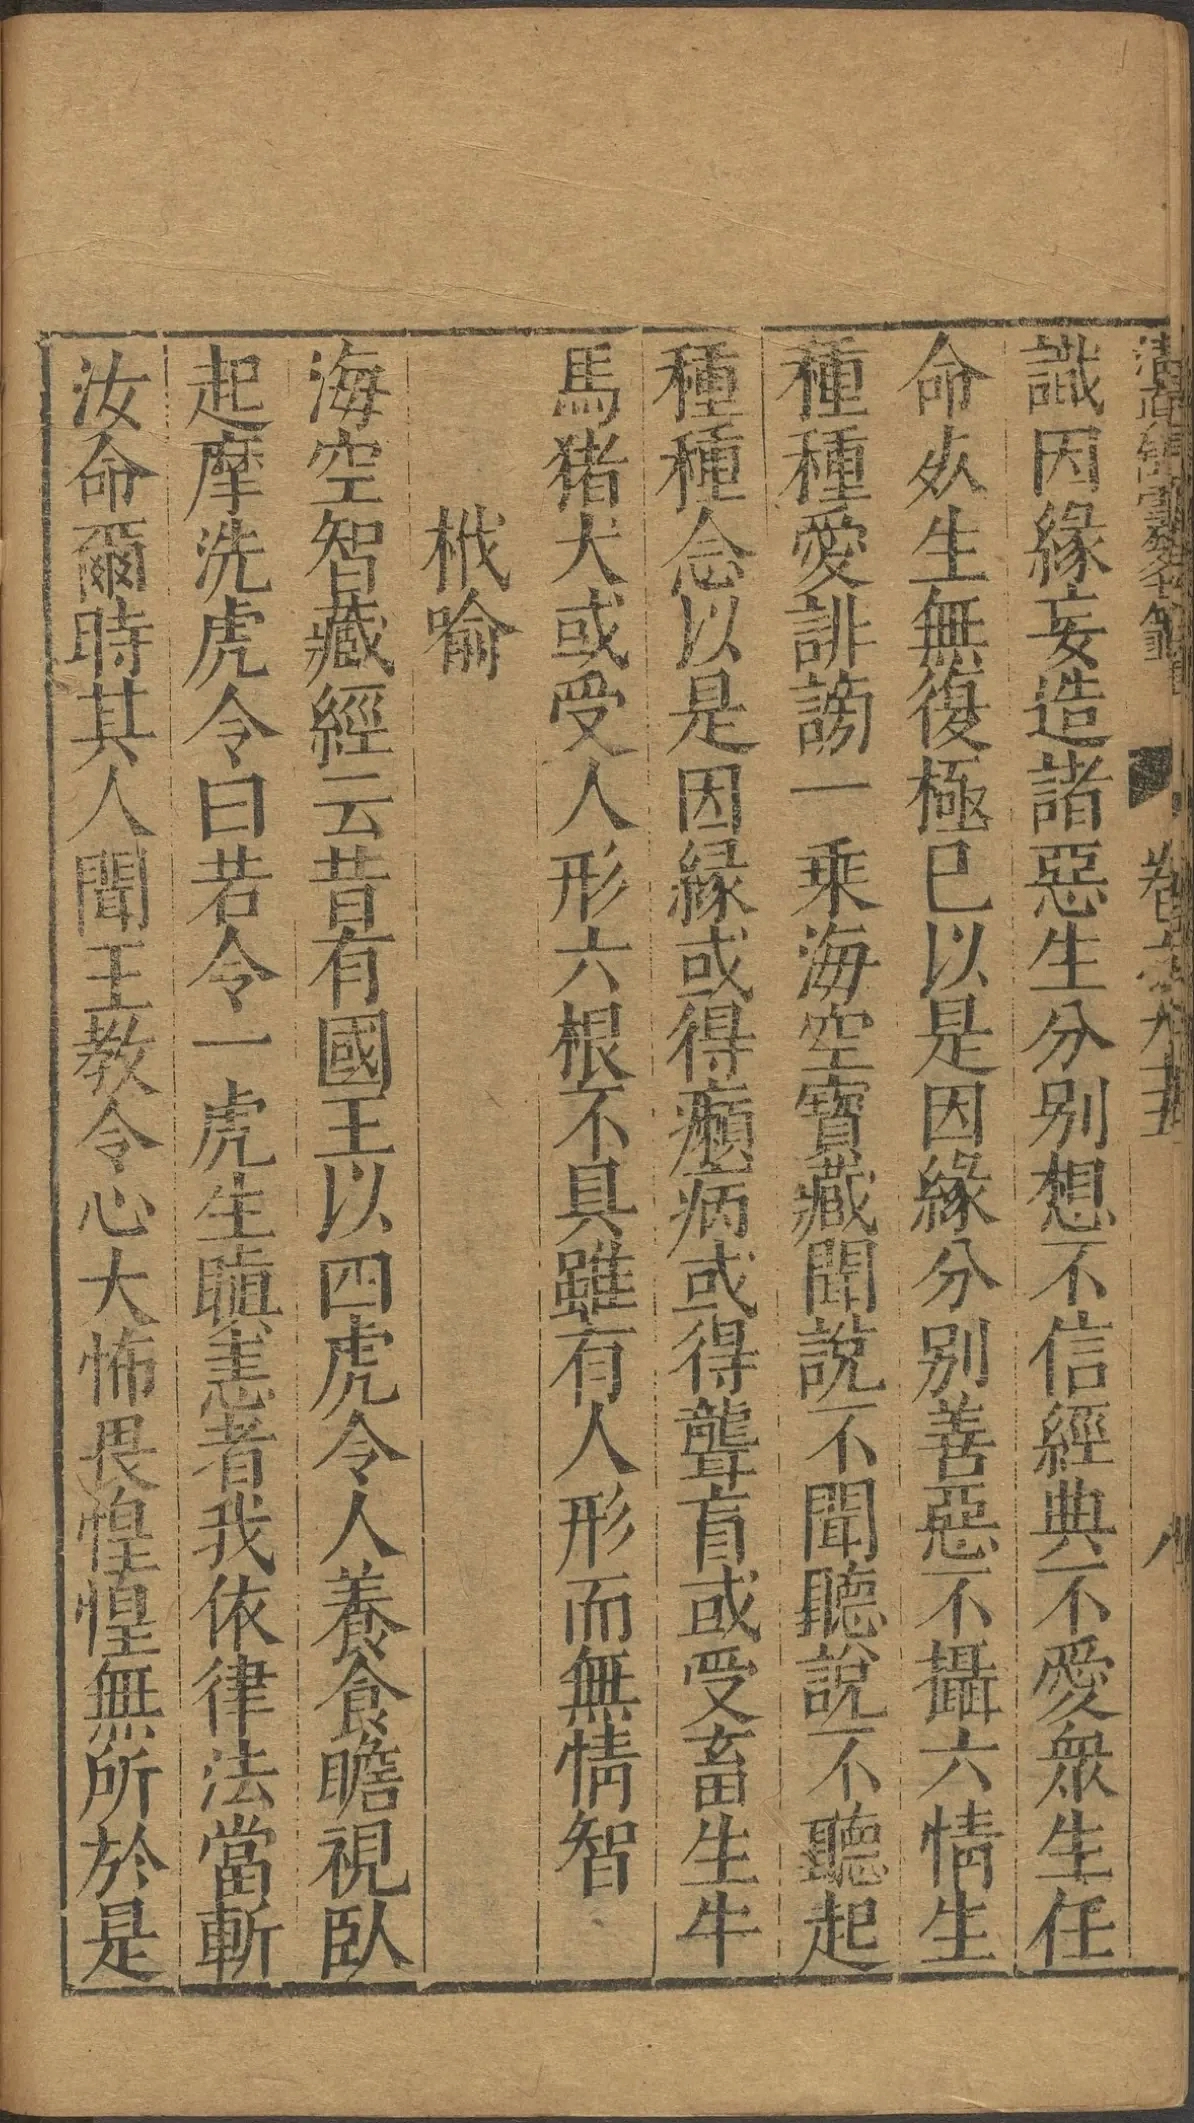 識因緣妄造諸惡生分别想不信經典不愛衆生任
命夭生無復極巳以是因緣分别善惡不攝六情生
種種愛誹謗一乗海空寶藏聞說不聞聽說不聽起
種種念以是因縁或得癩病或得聾盲或受畜生牛
馬猪犬或受人形六根不具雖有人形而無情智
栰喻
海空智藏經云昔有國王以四虎令人養食瞻視臥
起摩洗虎令曰若令一虎生瞋恚者我依律法當斬
汝命爾時其人聞王教令心大怖畏惶惶無所於是